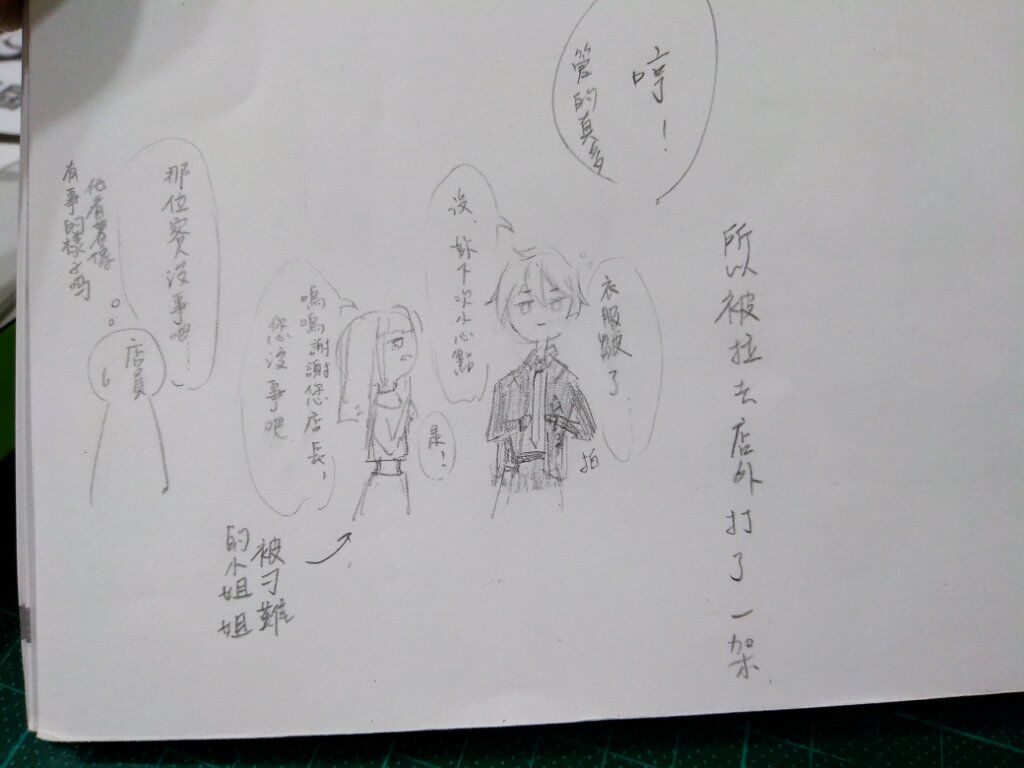 哼！
管的真多
所以被拉去店外打了一架
衣服皺了……
拍
沒，妳下次小心點
是！
嗚嗚謝謝您店長，
您沒事吧
被刁難
的小姐姐
那位客人沒事吧……
店員
他看著像
有事的樣子嗎